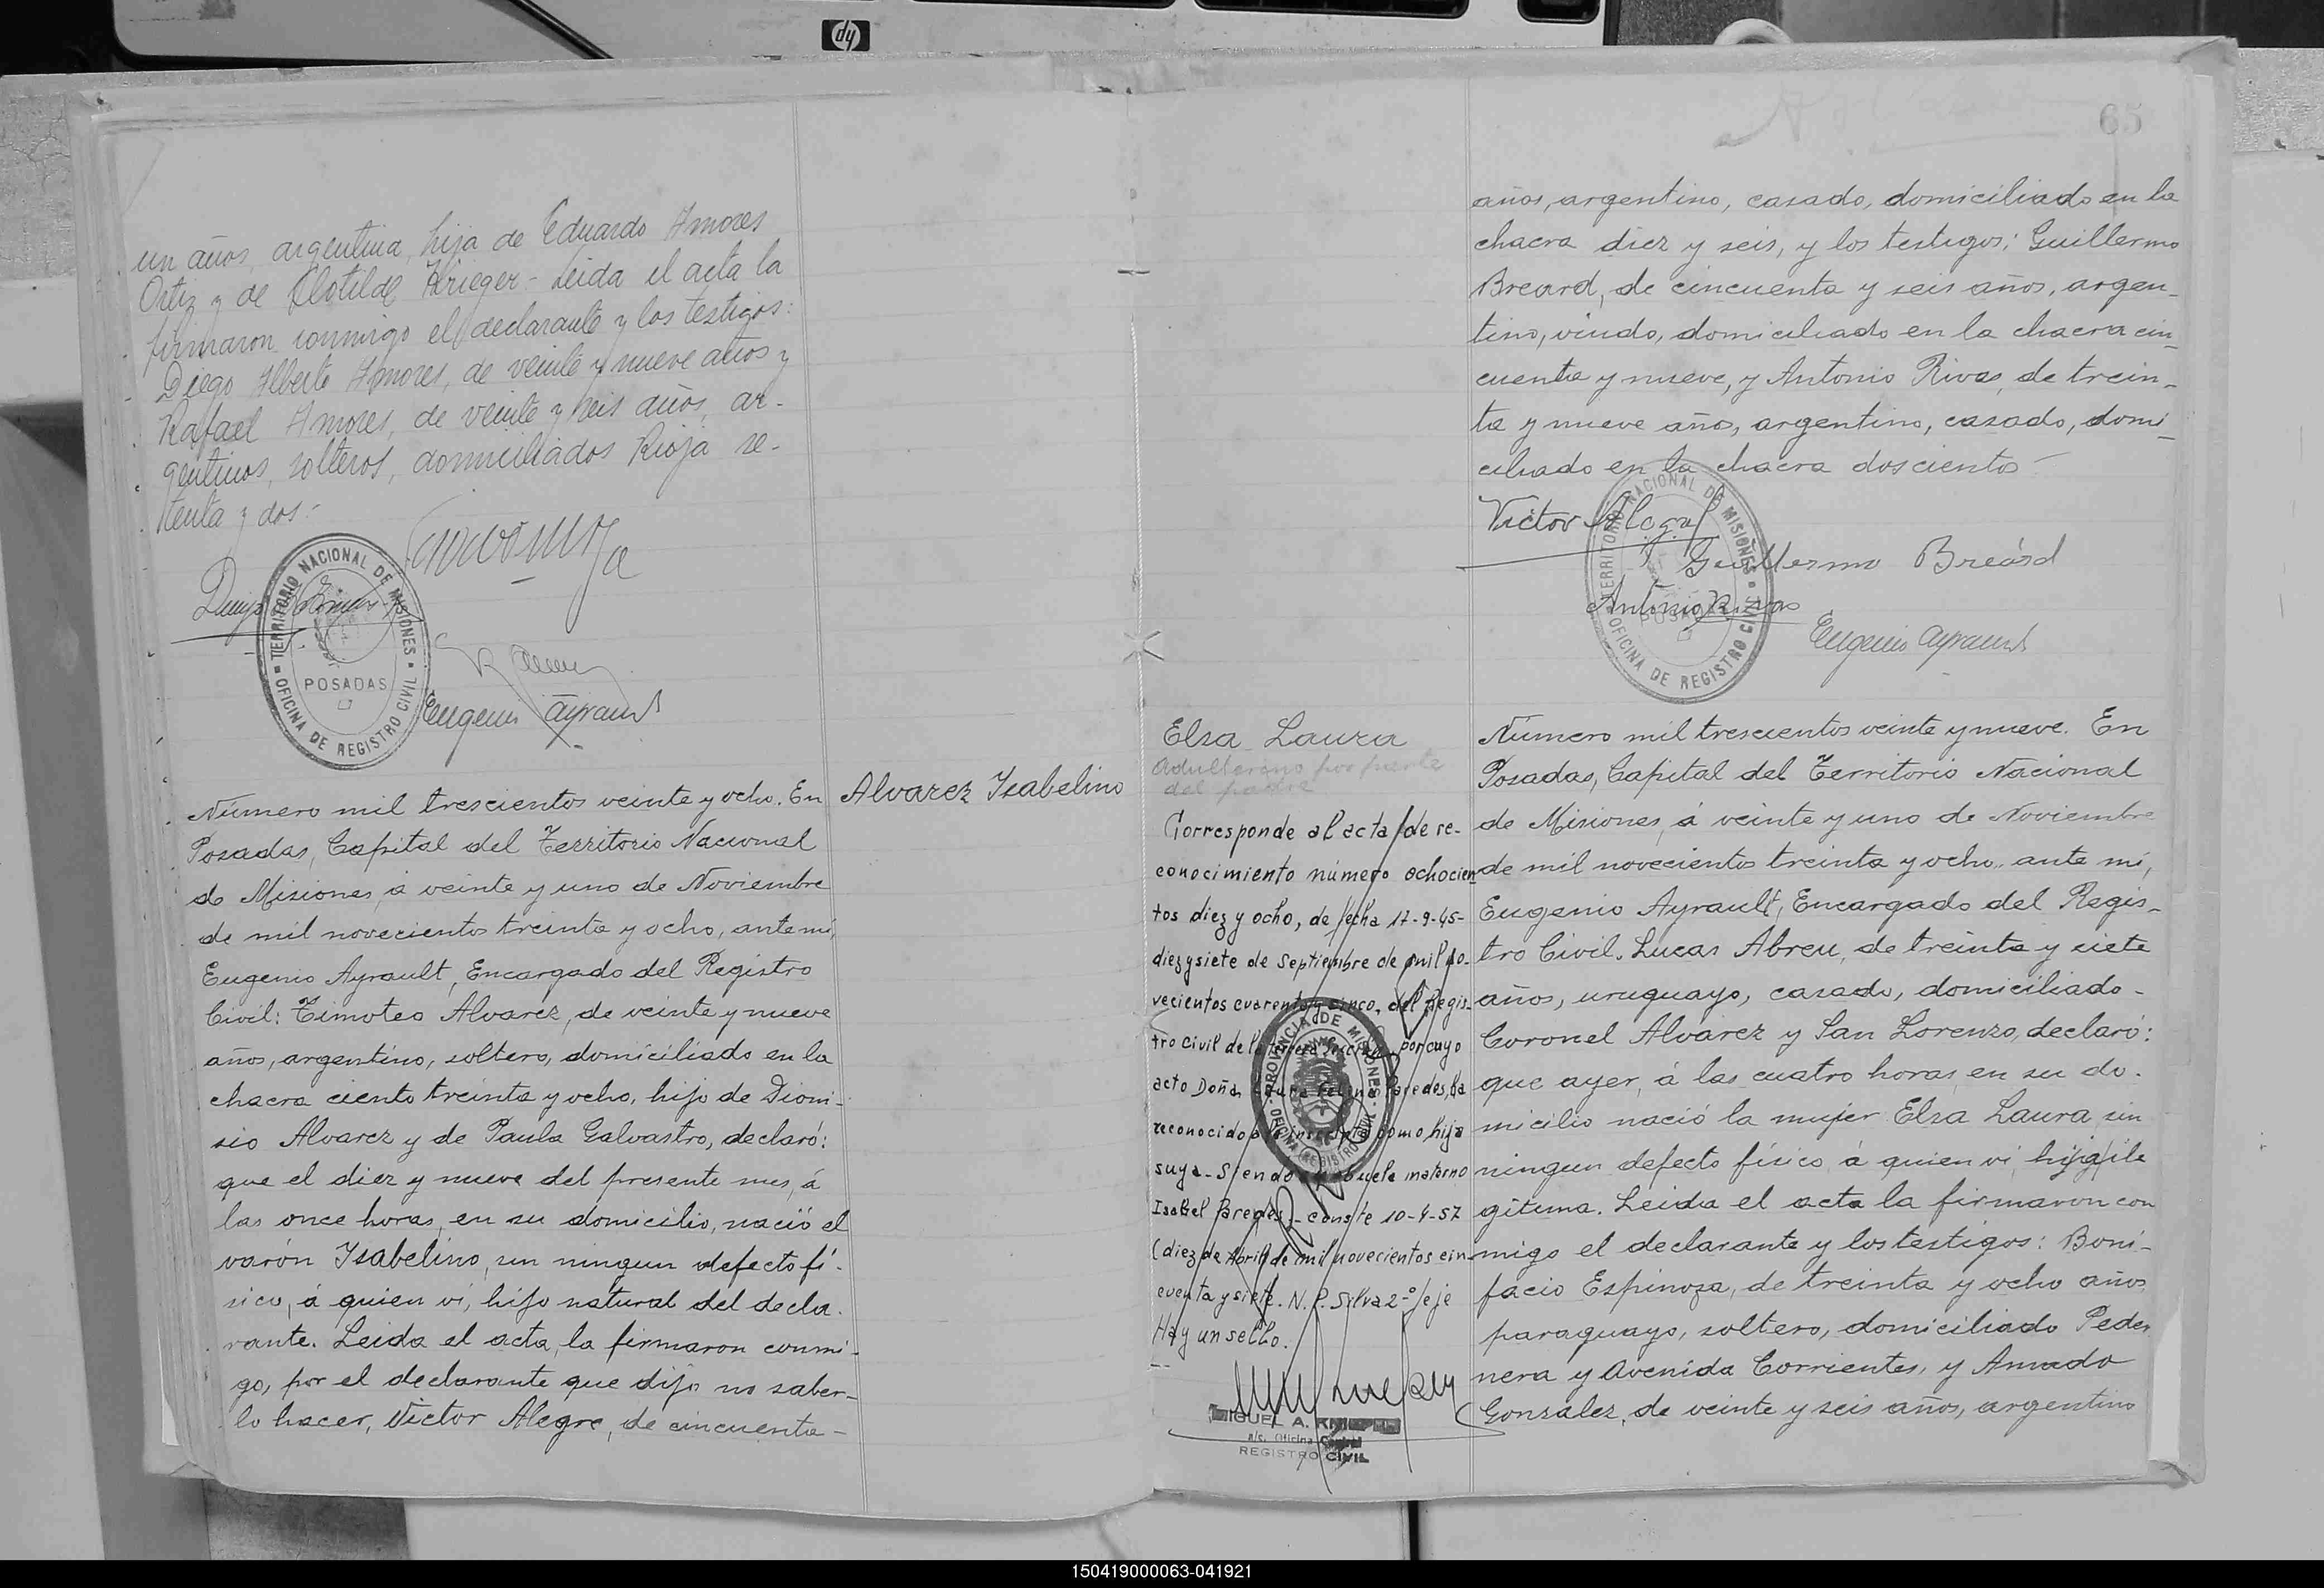 un años, argentina, hija de Eduardo Amores
Ortiz y de Clotilde Krieger - Leida el acta la
firmaron conmigo el declarante y los testigos:
Diego Alberto Amores, de veinte y nueve años y
Rafael Amores, de veinte y seis años, ar-
gentinos, solteros, domiciliados Rioja se-
tenta y dos -
TERRITORIO NACIONAL DE MISIONES
POSADAS
OFICINA DE REGISTRO CIVIL
Eugenio Ayrault
Número mil trescientos veinte y ocho. En
Posadas, Capital del Territorio Nacional
de Misiones, á veinte y uno de Noviembre
de mil novecientos treinta y ocho, ante mi,
Eugenio Ayrault, Encargado del Registro
Civil: Timoteo Alvarez, de veinte y nueve
años, argentino, soltero, domiciliado en la
chacra ciento treinta y ocho, hijo de Dioni-
sio Alvarez y de Paula Galvastro, declaró:
que el diez y nueve del presente mes, á
las once horas, en su domicilio, nació el
varón Ysabelino, sin ningun defecto fí-
sico, á quien vi, hijo natural del decla-
rante. Leida el acta, la firmaron conmi-
go, por el declarante que dijo no saber-
lo hacer, Victor Alegre, de cincuenta -
Alvarez Ysabelino
65
años, argentino, casado, domiciliado en la
chacra diez y seis, y los testigos: Guillermo
Breard, de cincuenta y seis años, argen-
tino, viudo, domiciliado en la chacra cin-
cuenta y nueve, y Antonio Rivas, de trein-
ta y nueve años, argentino, casado, domi-
ciliado en la chacra doscientos -
Victor Alegre
Guillermo Breárd
Antonio Rivas
Eugenio Ayrault
TERRITORIO NACIONAL DE MISIONES
POSADAS
OFICINA DE REGISTRO CIVIL
Elsa Laura
Adulterino por parte
del padre
Corresponde al acta de re-
conocimiento número ochocien-
tos diez y ocho, de fecha 17-9-45-
diez y siete de Septiembre de mil no-
vecientos cuarenta y cinco, del Regis-
tro Civil de la por cuyo
acto Doña Laura Paredes, ha
reconocido a la inscripta como hija
suya - Siendo abuela materna
Isabel Paredes - Conste 10-4-57
(diez de Abril de mil novecientos cin-
cuenta y siete. N. P. Silva 2º Jeje
Hay un sello.
PROVINCIA DE MISIONES
MIGUEL A.
a/c. Oficina Central
REGISTRO CIVIL
Número mil trescientos veinte y nueve. En
Posadas, Capital del Territorio Nacional
de Misiones, á veinte y uno de Noviembre
de mil novecientos treinta y ocho, ante mi,
Eugenio Ayrault, Encargado del Regis-
tro Civil. Lucas Abreu, de treinta y siete
años, uruguayo, casado, domiciliado -
Coronel Alvarez y San Lorenzo, declaró:
que ayer, á las cuatro horas, en su do-
micilio nació la mujer Elsa Laura, sin
ningun defecto físico, á quien vi, hija ile
gitima. Leida el acta la firmaron con
migo el declarante y los testigos: Boni-
facio Espinoza, de treinta y ocho años,
paraguayo, soltero, domiciliado Peder
nera y Avenida Corrientes, y Amado
Gonsález, de veinte y seis años, argentino
150419000063-041921